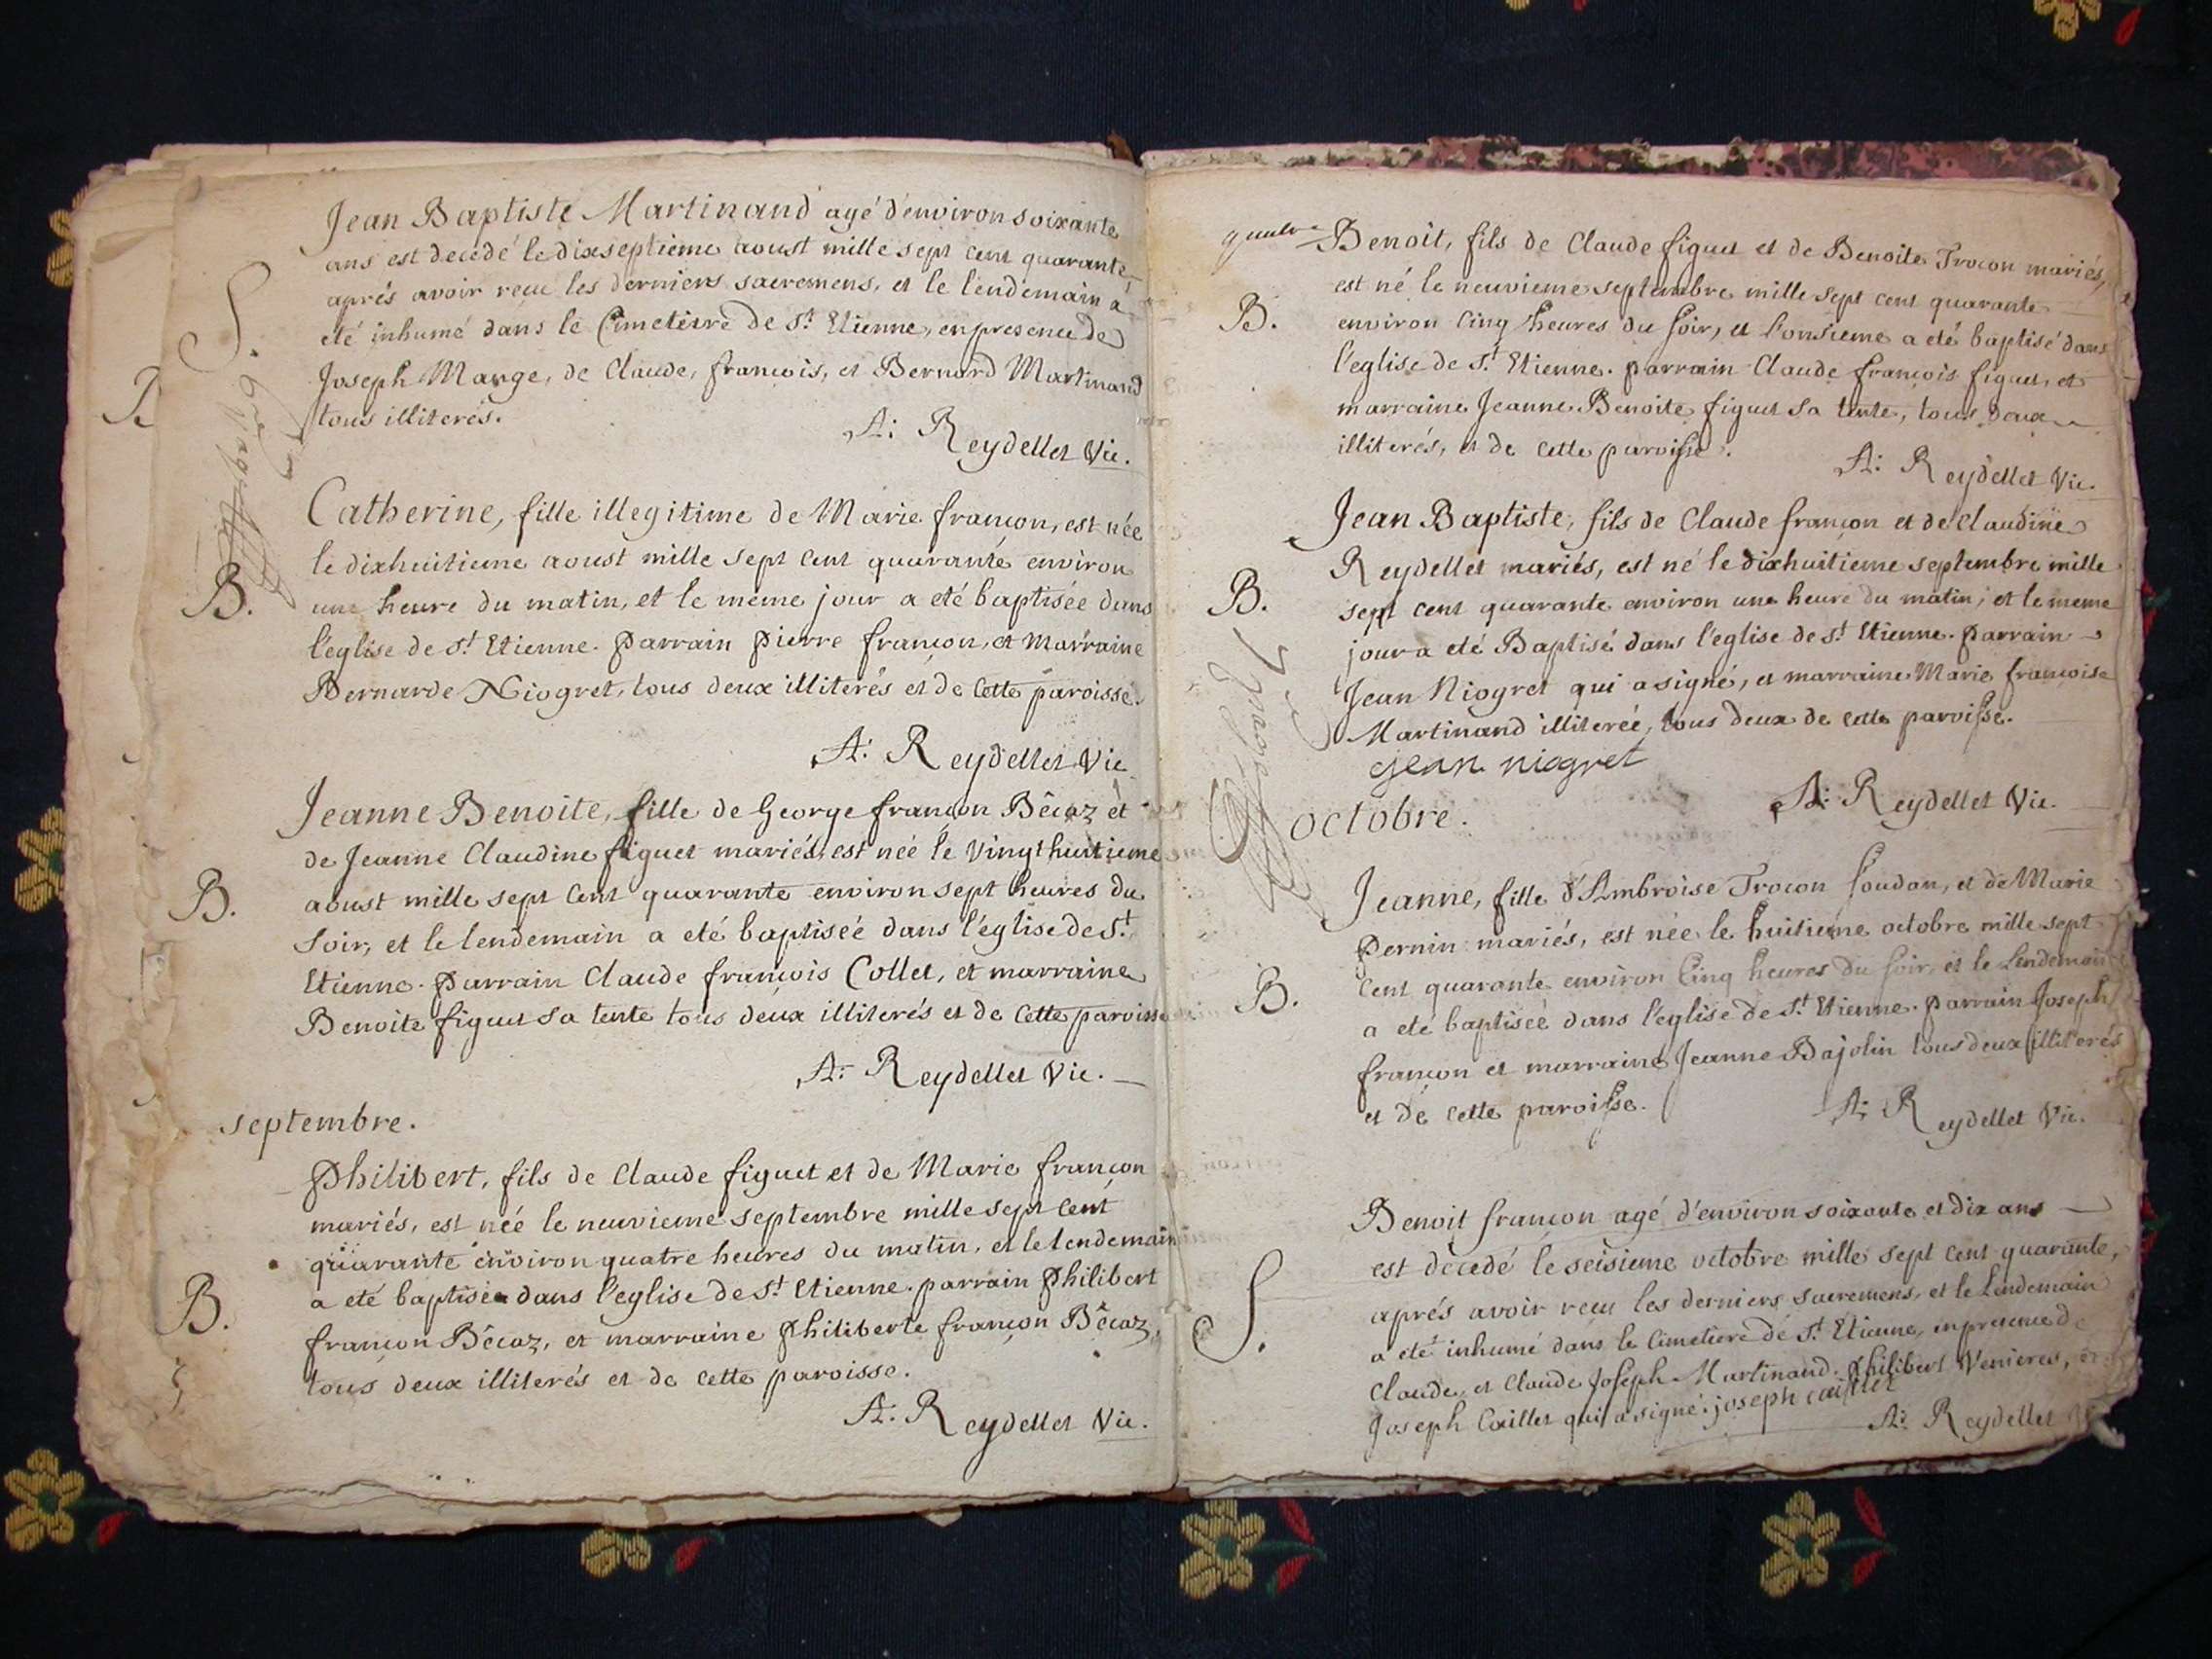 Jean Baptiste Martinand agé d'environ soixante
ans est decedé le dixseptieme aoust mille sept cent quarante
aprés avoir reçu les derniers sacremens, et le lendemain a
S.
eté inhumé dans le Cimetiere de St Etienne, en presence de
Joseph Mange, de Claude, françois, et Bernard Martinand
tous illiterés.
A: Reydellet Vic.
Catherine, fille illegitime de Marie françon, est née
le dixhuitieme aoust mille sept cent quarante environ
B.
une heure du matin, et le même jour a eté baptisée dans
l'eglise de St Etienne. parrain pierre françon, et marraine
Bernarde Niogret, tous deux illiterés et de cette paroisse.
A: Reydellet Vic
Jeanne Benoite, fille de George françon Bêcaz et
de Jeanne Claudine figuet mariés, est née le vingthuitieme
B.
aoust mille sept cent quarante environ sept heures du
soir, et le lendemain a eté baptiseé dans l'église de St
Etienne. parrain Claude françois Collet, et marraine
Benoite figuet sa tente tous deux illiterés et de cette paroisse
A: Reydellet Vic.
septembre.
philibert, fils de Claude figuet et de Marie françon
mariés, est née le neuvieme septembre mille sept cent
quarante environ quatre heures du matin, et le lendemain
B.
a eté baptisé dans l'eglise de St Etienne. parrain philibert
françon Bêcaz, et marraine philiberte françon Bêcaz,
tous deux illiterés et de cette paroisse.
A: Reydellet Vic.
Benoit, fils de Claude figuet et de Benoite Trocon mariés,
est né le neuvieme septembre mille sept cent quarante
B.
environ cinq heures du soir, et l'onsieme a eté baptisé dans
l'eglise de St Etienne. parrain Claude françois figuet, et
marraine Jeanne Benoite figuet sa tente, tous deux
illiterés, et de cette paroisse.
A: Reydellet Vic.
Jean Baptiste, fils de Claude françon et de Claudine
Reydellet mariés, est né le dixhuitieme septembre mille
B.
sept cent quarante environ une heure du matin, et le meme
jour a eté Baptisé dans l'eglise de St Etienne. parrain
Jean Niogret qui a signé, et marraine Marie françoise
Martinand illitereé, tous deux de cette paroisse.
jean niogret
A: Reydellet Vic.
octobre.
Jeanne, fille d'Ambroise Trocon soudan, et de Marie
pernin mariés, est née le huitieme octobre mille sept
B.
cent quarante environ cinq heures du soir, et le lendemain
a eté baptiseé dans l'eglise de St Etienne. parrain Joseph
françon et marraine Jeanne Bajolin tous deux illiterés
et de cette paroisse.
A: Reydellet Vic.
Benoit françon agé d'environ soixante et dix ans
est decedé le seisieme octobre mille sept cent quarante,
aprés avoir reçu les derniers sacremens, et le lendemain
S.
a eté inhumé dans le cimetiere de St Etienne, en presence de
Claude, et Claude Joseph Martinand, philibert
Joseph Caillet qui a signé: joseph caillet
A: Reydellet